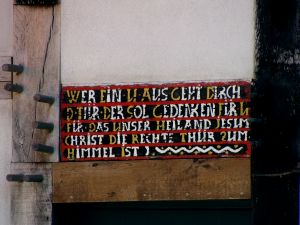 WER EIN U AUS GEHT DIRCH
D TÜR DER SOL GEDENKEN FÜR U
FÜR DAS UNSER HEILAND JESUS
CHRIST DIE RECHTE THÜR ZUM
HIMMEL IST